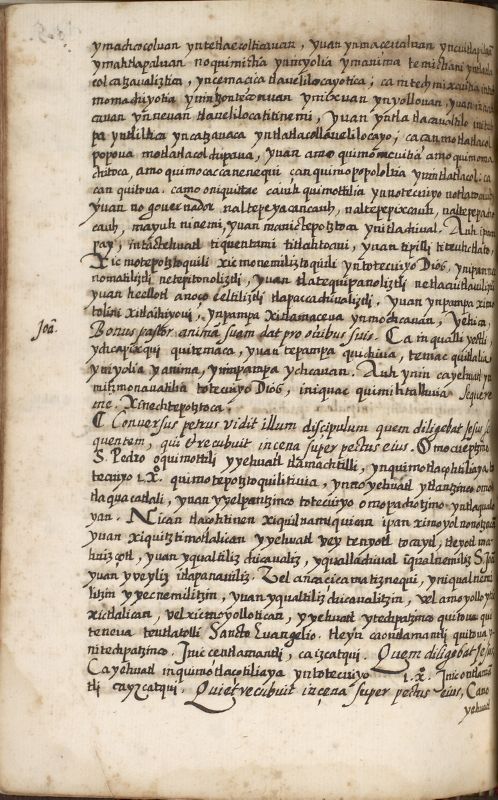 ymachocolvan yntetlaecolticavan, yvan ynmacevalvan yncuitlapilvan
ymahtlapalvan noquimitha yncyolia ymanima temictiani yntlatla
colcatzavaliztica, yncemacica tlavelilocayotica; ca intechmixcuitia
momachiyotia yninhontecomvan ymixvan ynyollovan, yvan
cuvan ynnevan tlavelilocatitinemi, yvan yntla tlacavaltilo
pa yntliltica yncatzavaca yntlatlacollavelilocayo; cacanmotlatlacol
popova motlatlacolchipava, yvan amo quimomevitia amo quimoma
chitoca, amo quimocaccanenequi canquimopopololhia ynintlatlacol: ca
can quitova. camo oniquittac caiuh quimottilia ynnotecuiyo
yvan no governador naltepeyacancauh, naltepepixcauh, naltepepa
cauh, mayuh ninemi, yvan manictepotztoca ynitlachival. Auh ipam
pay, intactehvatl tiquentami titlahtoani, ynan tipilli titeuhctlato,
Xicmotepotztoquili xicmonemiliztoquili yntotecuiyo Dios, ynpanpa
nomatiliztli netepitonoliztli, yvan tlatequipanoliztli netlacuitlaviliztli
yvan heellotl anoço celtiliztli tlapaccachivaliztli. yvan ynpampa ximo
tolini xitlaihiyovi, ynpampa xitlamaceva ynmochcavan, yehica,
Joã. Bonus pastor animã suam dat pro ovibus suis. Ca in qualli yectli,
ychcapixqui quitemaca, yvan tepampa quichiva, temac quitlalia
yniyolia yanima, ynimpampa ychcavan. Auh ynin cayehvatl yn
mitzmonavatilia totecuiyo Dios, iniquac quimihtalhuia Sequere
me. Xinechtepotztoca.
¶ Conversus petrus vidit illum discipulum quem diligebat Jesus se
quentem, qui et recubuit in cena super pectus eius. Omocueptzino
S. Pedro oquimottili yyehvatl tlamachtilli, ynquimotlaçohtiliaya
tecuiyo .i.x̃o. quimotepotztoquilitivia, ynno yehvatl ytlantzinco omo
tlaquacatlali, yvan yyelpantzinco totecuiyo omopachotzino yntlaqualo
yan. Nican tlaçohtinen xiquilnamiquican ipan ximoyolnonotzacan
yvan xiquitztimotlalican yyehvatl vey tenyotl tocayotl, tleyotl ma
huizçotl, yvan yqualtiliz chicavaliz, yquallachival iqualnemiliz S. Joã
yvan yveyliz itlapanaviliz. Vel añacicamatiznequi, yniqualnemi
liztzin yyecnemilitzin, yvan yqualtiliz chicavalitzin, vel amoyolloytic
xictlalican, vel ximoyollotican, yyehvatl ytechpatzinco quitova qui
teneva teutlatolli Sancto Evangelio. tleyn caontlamantli quitova
nitechpatzinco. Inic centlamantli, caizcatqui. Quem diligebat Jesus
Cayehvatl inquimotlaçotiliaya yntotecuiyo .i.x̃o. Inic ontlaman
tli cayzcatqui. Qui et recubuit in cena super pectus eius, Cano
yehvatl